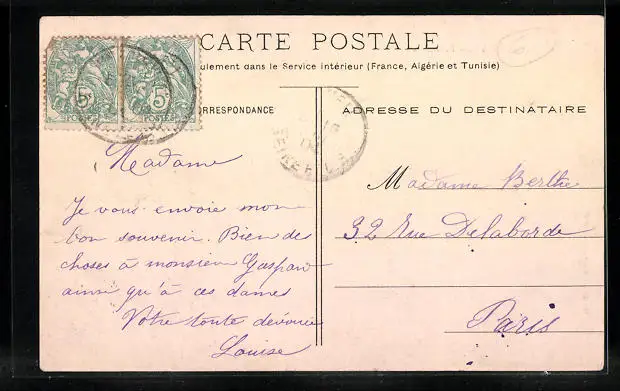 CARTE POSTALE
ulement dans le Service intérieur (France, Algérie et Tunisie)
ORRESPONDANCE
ADRESSE DU DESTINATAIRE
5c 5c
POSTES POSTES
Madame
Je vous envoie mon
bon souvenir. Bien des
choses à monsieur Gaspard
ainsi qu'à ces dames
Votre toute dévouée
Louise
Madame Berthe
32 Rue Delaborde
Paris